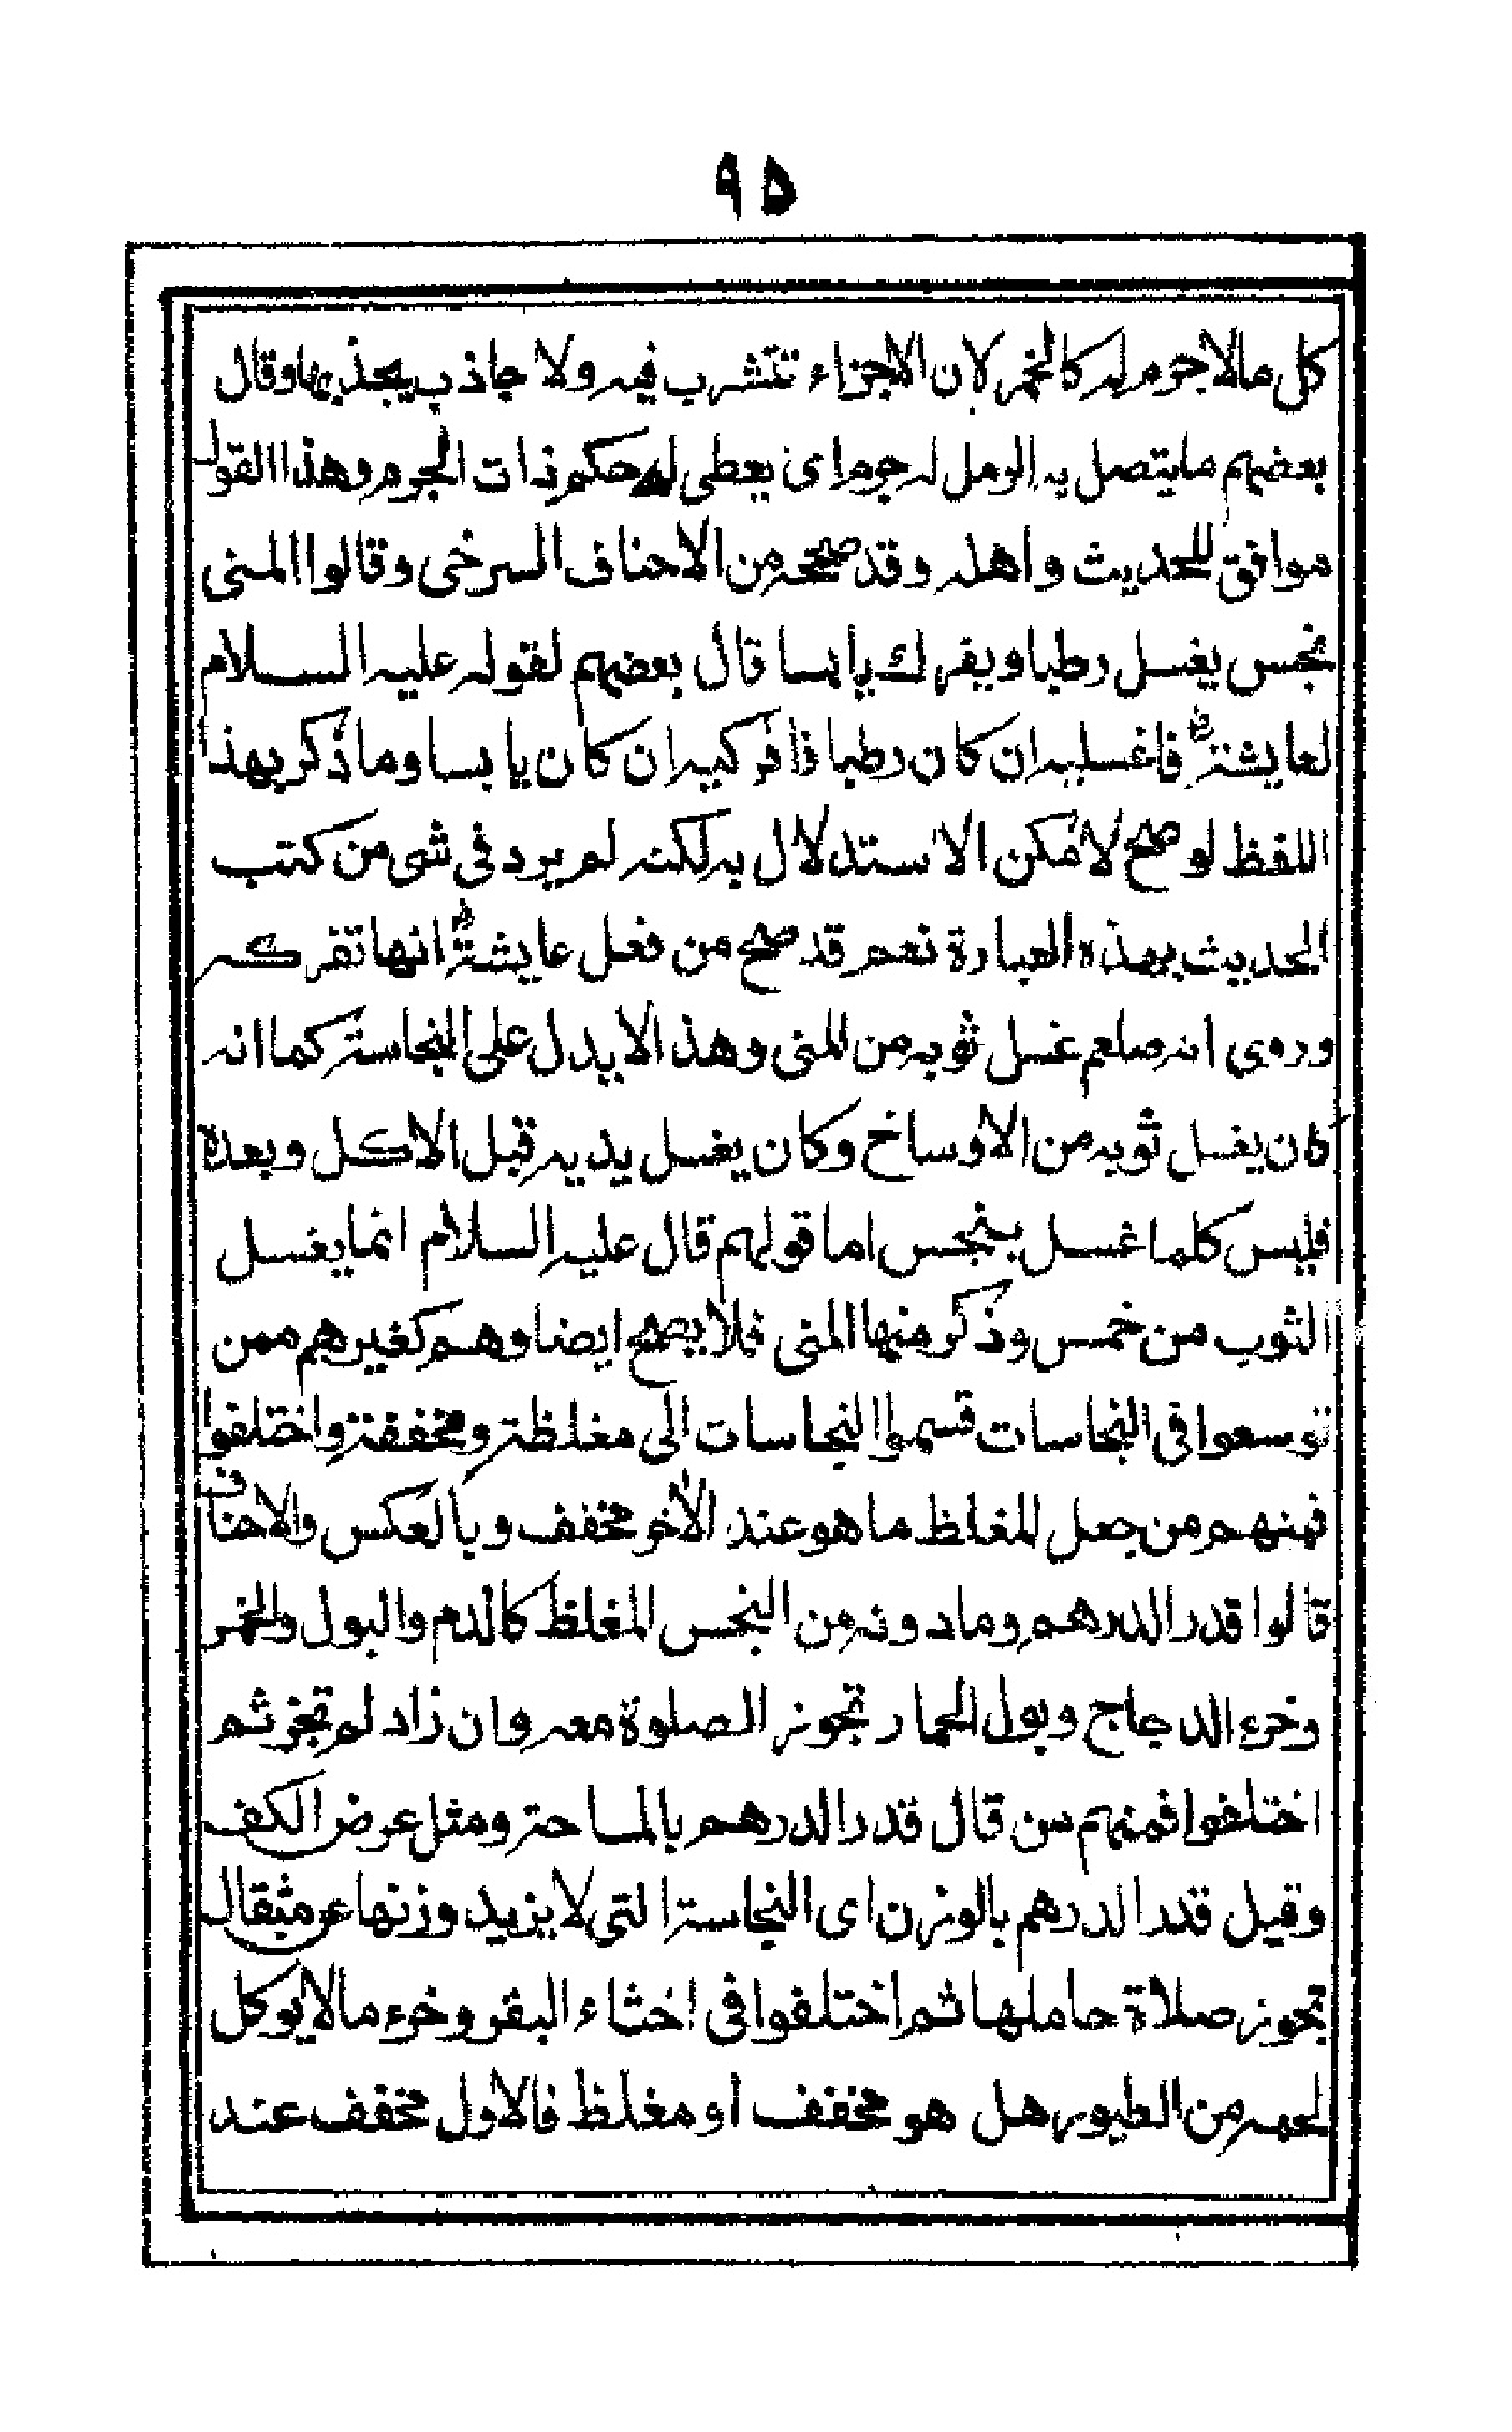 ٩٥
كل مالاجرم له كالخمر لان الاجزاء تتشرب فيه ولا جاذب يجذبها وقال
بعضهم مايتصل به الرمل له جرم اى يعطى له حكم ذات الجرم وهذا القول
موافق للحديث واهله وقد صححه من الاحناف السرخى وقالوا المنى
نجس يغسل رطبا ويفرك يابسا قال بعضهم لقوله عليه السلام
لعايشة رض فاغسليه ان كان رطبا فافركيه ان كان يابسا وماذكر بهذا
اللفظ لو صح لامكن الاستدلال به لكنه لم يرد فى شى من كتب
الحديث بهذه العبارة نعم قد صح من فعل عايشة رض انها تفركه
وروى انه صلعم غسل ثوبه من المنى وهذا لا يدل على النجاسة كما انه
كان يغسل ثوبه من الاوساخ وكان يغسل يديه قبل الاكل وبعده
فليس كلما غسل بنجس اما قولهم قال عليه السلام انما يغسل
الثوب من خمس وذكر منها المنى فلا يصح ايضا وهم كغيرهم ممن
توسعوا فى النجاسات قسموا النجاسات الى مغلظة ومخففة واختلفوا
فمنهم من جعل المغلظ ما هو عند الأخر مخفف وبالعكس والاحناف
قالوا قدر الدرهم وما دونه من النجس المغلظ كالدم والبول والخمر
وخرء الدجاج وبول الحمار تجوز الصلوة معه وان زاد لم تجز ثم
اختلفوا فمنهم من قال قدر الدرهم بالمساحة ومثل عرض الكف
وقيل قدر الدرهم بالوزن اى النجاسة التى لا يزيد وزنها عن مثقال
تجوز صلاة حاملها ثم اختلفوا فى اخثاء البقر وخرء مالا يوكل
لحمه من الطيور هل هو مخفف او مغلظ فالاول مخفف عند